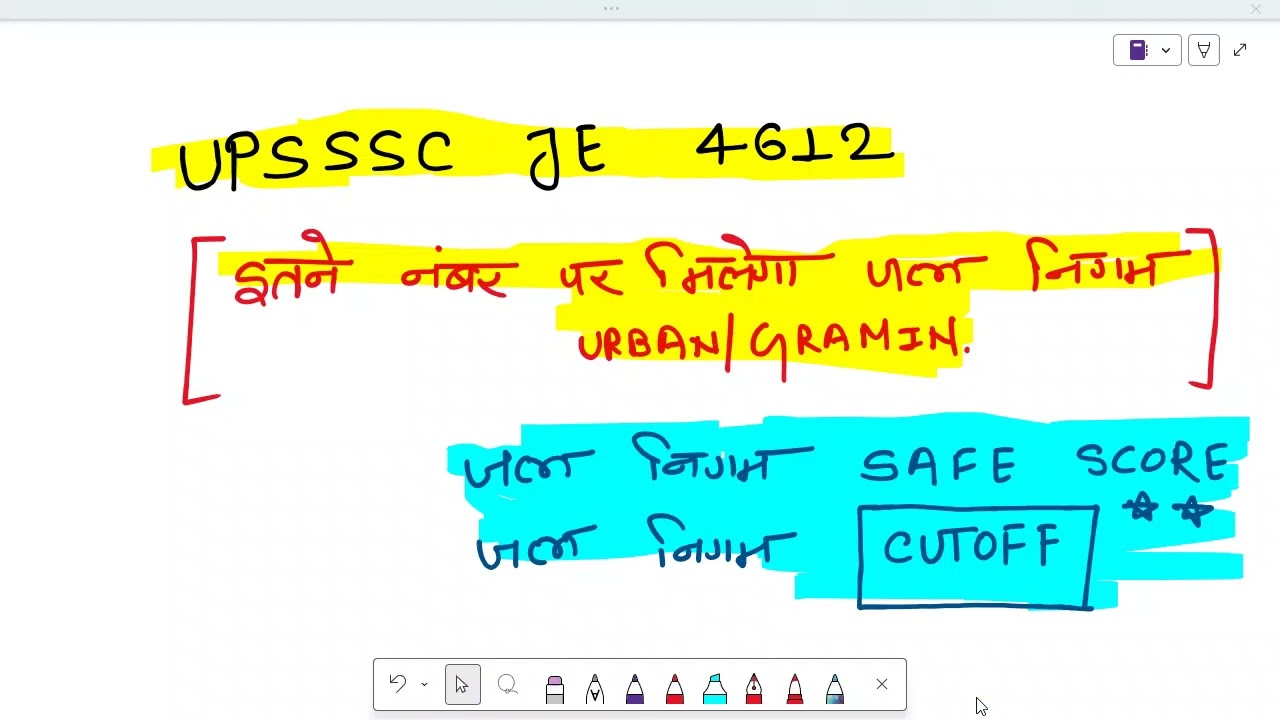 UPSSSC JE 4612
[इतने नंबर पर मिलेगा जल निगम
URBAN/GRAMIN.]
जल निगम SAFE SCORE
जल निगम CUTOFF